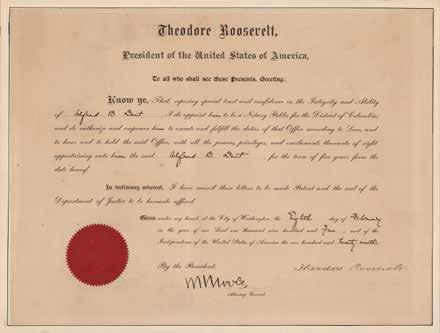 Theodore Roosevelt,
President of the United States of America,
To all who shall see these Presents, Greeting:
Know ye, That, reposing special trust and confidence in the Integrity and Ability
of Alfred B. Dent , I do appoint him to be a Notary Public for the District of Columbia,
and do authorize and empower him to execute and fulfill the duties of that Office according to Law, and
to have and to hold the said Office, with all the powers, privileges, and emoluments thereunto of right
appertaining unto him the said Alfred B. Dent for the term of five years from the
date hereof.
In testimony whereof, I have caused these letters to be made Patent and the seal of the
Department of Justice to be hereunto affixed.
Given under my hand, at the City of Washington, the Eighth day of February
in the year of our Lord one thousand nine hundred and Five , and of the
Independence of the United States of America the one hundred and twenty ninth.
By the President:
Theodore Roosevelt
Attorney General.